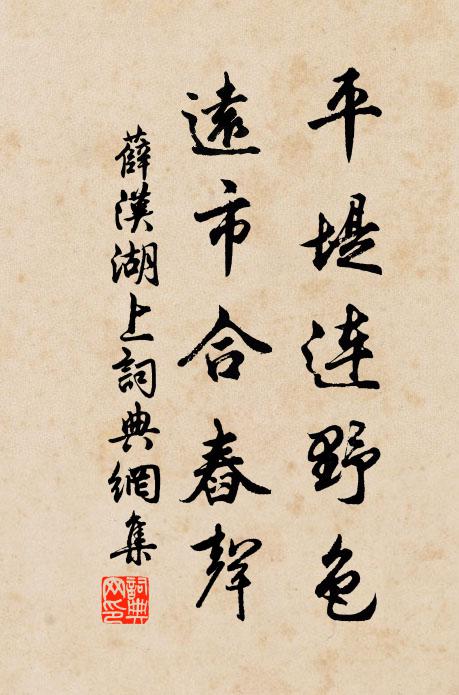 平堤連野色
遠市合舂聲
薛漢湖上詞典網集
詞典網印